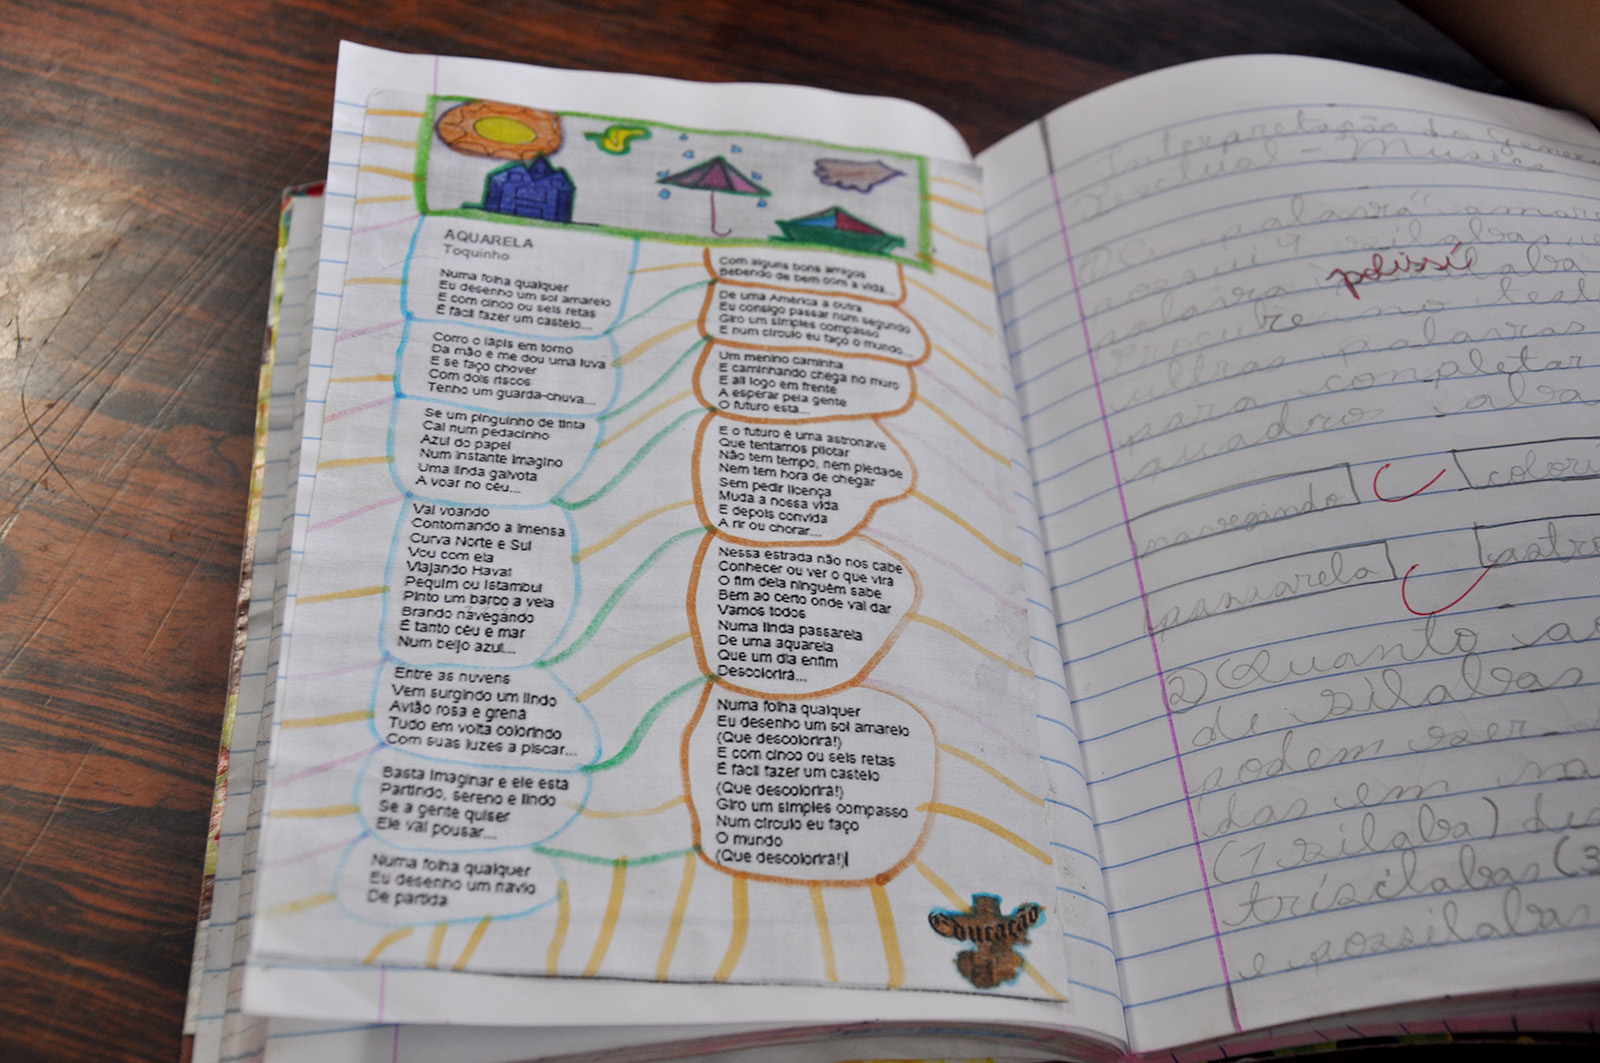 AQUARELA
Toquinho
Numa folha qualquer
Eu desenho um sol amarelo
E com cinco ou seis retas
É fácil fazer um castelo...
Corro o lápis em torno
Da mão e me dou uma luva
E se faço chover
Com dois riscos
Tenho um guarda-chuva...
Se um pinguinho de tinta
Cai num pedacinho
Azul do papel
Num instante imagino
Uma linda gaivota
A voar no céu...
Vai voando
Contornando a imensa
Curva Norte e Sul
Vou com ela
Viajando Havaí
Pequim ou Istambul
Pinto um barco a vela
Brando navegando
É tanto céu e mar
Num beijo azul...
Entre as nuvens
Vem surgindo um lindo
Avião rosa e grená
Tudo em volta colorindo
Com suas luzes a piscar...
Basta imaginar e ele está
Partindo, sereno e lindo
Se a gente quiser
Ele vai pousar...
Numa folha qualquer
Eu desenho um navio
De partida
Com alguns bons amigos
Bebendo de bem com a vida...
De uma América a outra
Eu consigo passar num segundo
Giro um simples compasso
E num círculo eu faço o mundo...
Um menino caminha
E caminhando chega no muro
E ali logo em frente
A esperar pela gente
O futuro está...
E o futuro é uma astronave
Que tentamos pilotar
Não tem tempo, nem piedade
Nem tem hora de chegar
Sem pedir licença
Muda a nossa vida
E depois convida
A rir ou chorar...
Nessa estrada não nos cabe
Conhecer ou ver o que virá
O fim dela ninguém sabe
Bem ao certo onde vai dar
Vamos todos
Numa linda passarela
De uma aquarela
Que um dia enfim
Descolorirá...
Numa folha qualquer
Eu desenho um sol amarelo
(Que descolorirá!)
E com cinco ou seis retas
É fácil fazer um castelo
(Que descolorirá!)
Giro um simples compasso
Num círculo eu faço
O mundo
(Que descolorirá!)
Educação
Interpretação do Gênero
Textual - Música
palavra" amar
possui 4 sílabas
palavra polissí laba
Procure no text
outras palavras
para completar
quadros aba
navegando colori
passarela astro
2) Quanto ao
de sílabas
podem ser
das em m
(1 sílaba) dis
trissílabas (3
e possilabas